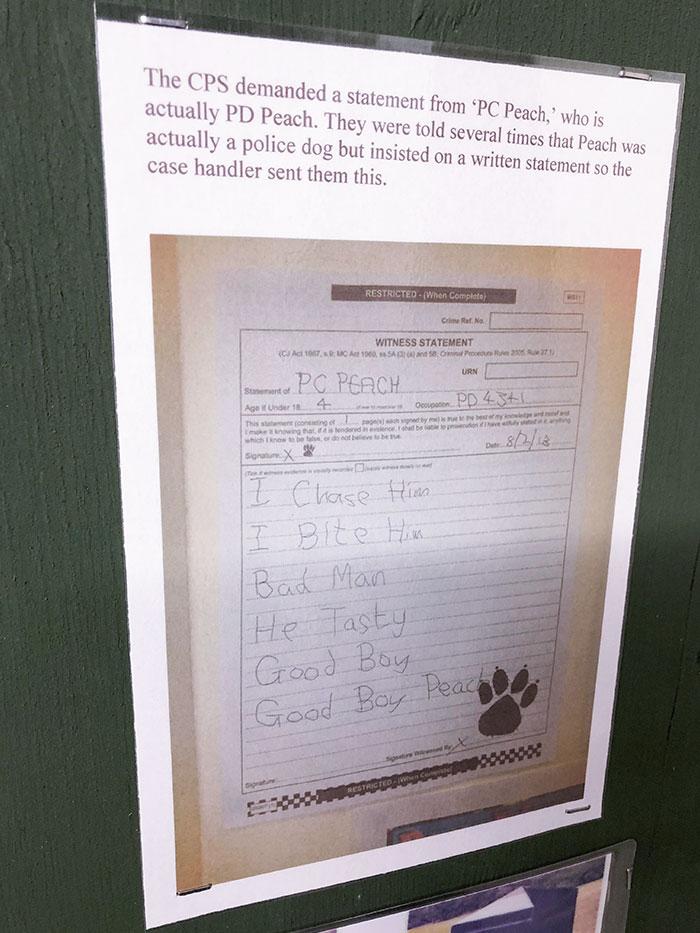 The CPS demanded a statement from 'PC Peach,' who is
actually PD Peach. They were told several times that Peach was
actually a police dog but insisted on a written statement so the
case handler sent them this.
RESTRICTED - (When Complete)
MG11
Crime Ref. No.
WITNESS STATEMENT
(CJ Act 1967, s.9; MC Act 1980, ss.5A (3) (a) and 5B; Criminal Procedure Rules 2005, Rule 27.1)
URN
Statement of PC PEACH
Age if Under 18 4 Occupation: PD 4341
This statement (consisting of 1 page(s) each signed by me) is true to the best of my knowledge and belief and
I make it knowing that, if it is tendered in evidence, I shall be liable to prosecution if I have wilfully stated in it, anything
which I know to be false, or do not believe to be true.
Signature: X Date: 8/2/18
I Chase Him
I Bite Him
Bad Man
He Tasty
Good Boy
Good Boy Peach
Signature Signature Witnessed By: X
RESTRICTED - (When Complete)